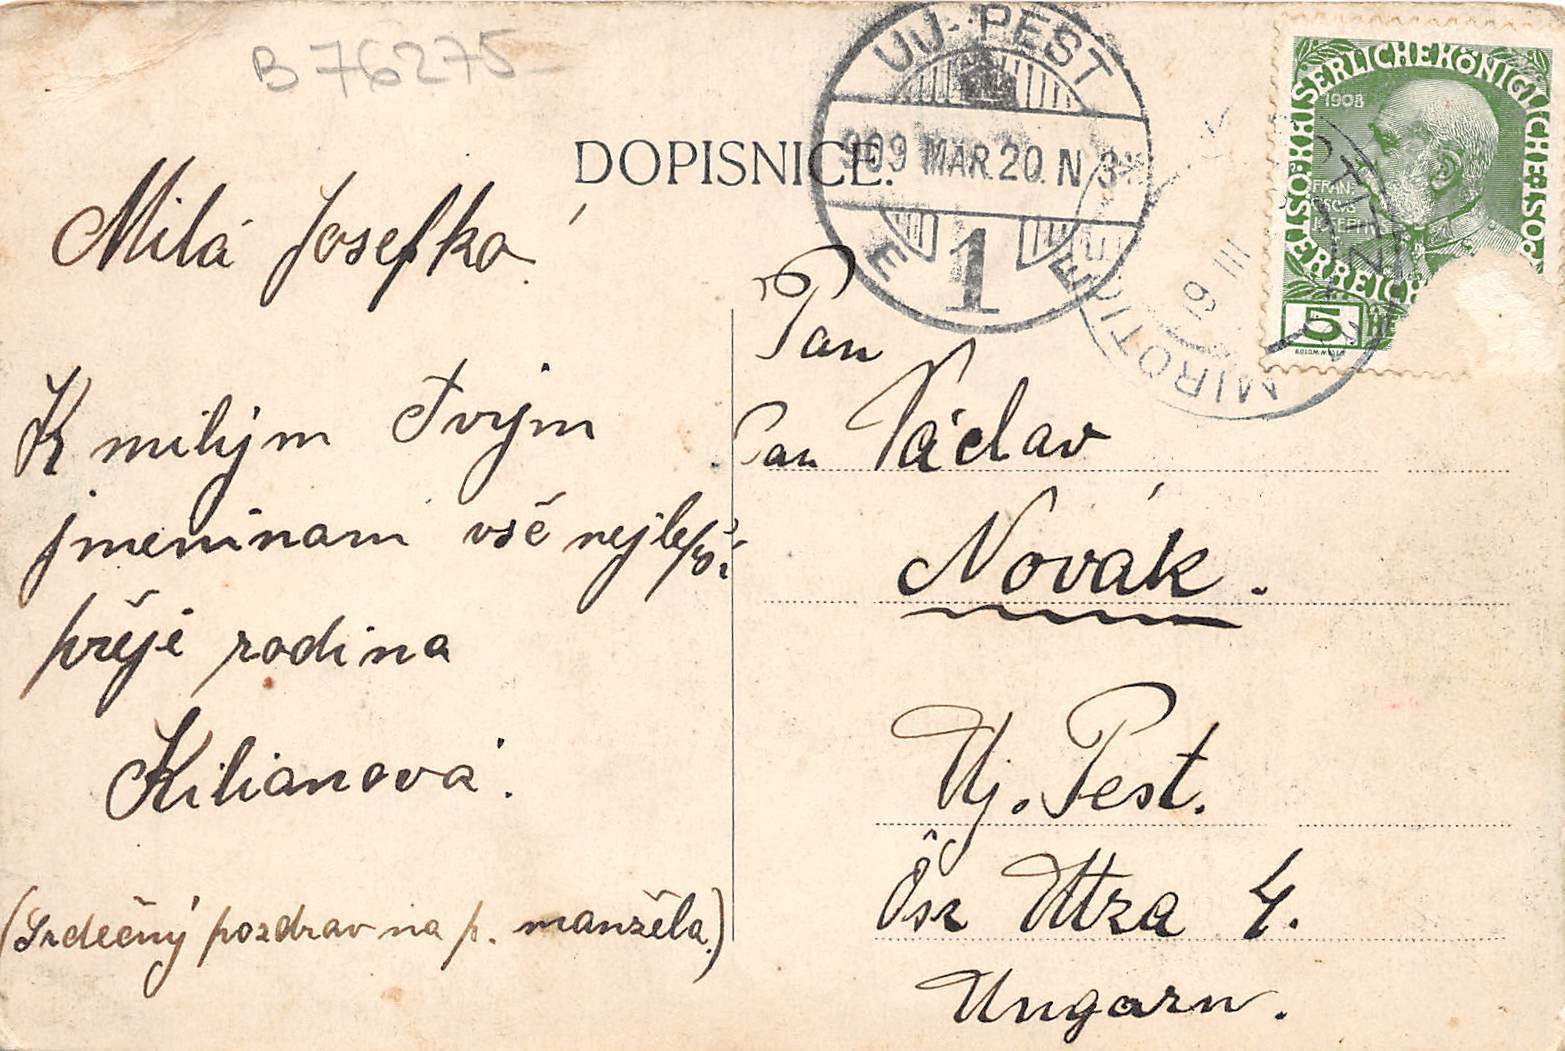 B 76275
DOPISNICE.
UJ-PEST
909 MAR. 20. N 3
E 1 E
KAISERLICHE KÖNIGLICHE
1908
FRANZ
JOSEPH
5
MIROTI
III
Milá Josefko!
K milým Tvým
jmeninám vše nejlepší
přeje rodina
Kilianova.
(Srdečný pozdrav na p. manžela.)
Pan
Pan Václav
Novák.
Uj. Pest.
Utza 4.
Ungarn.